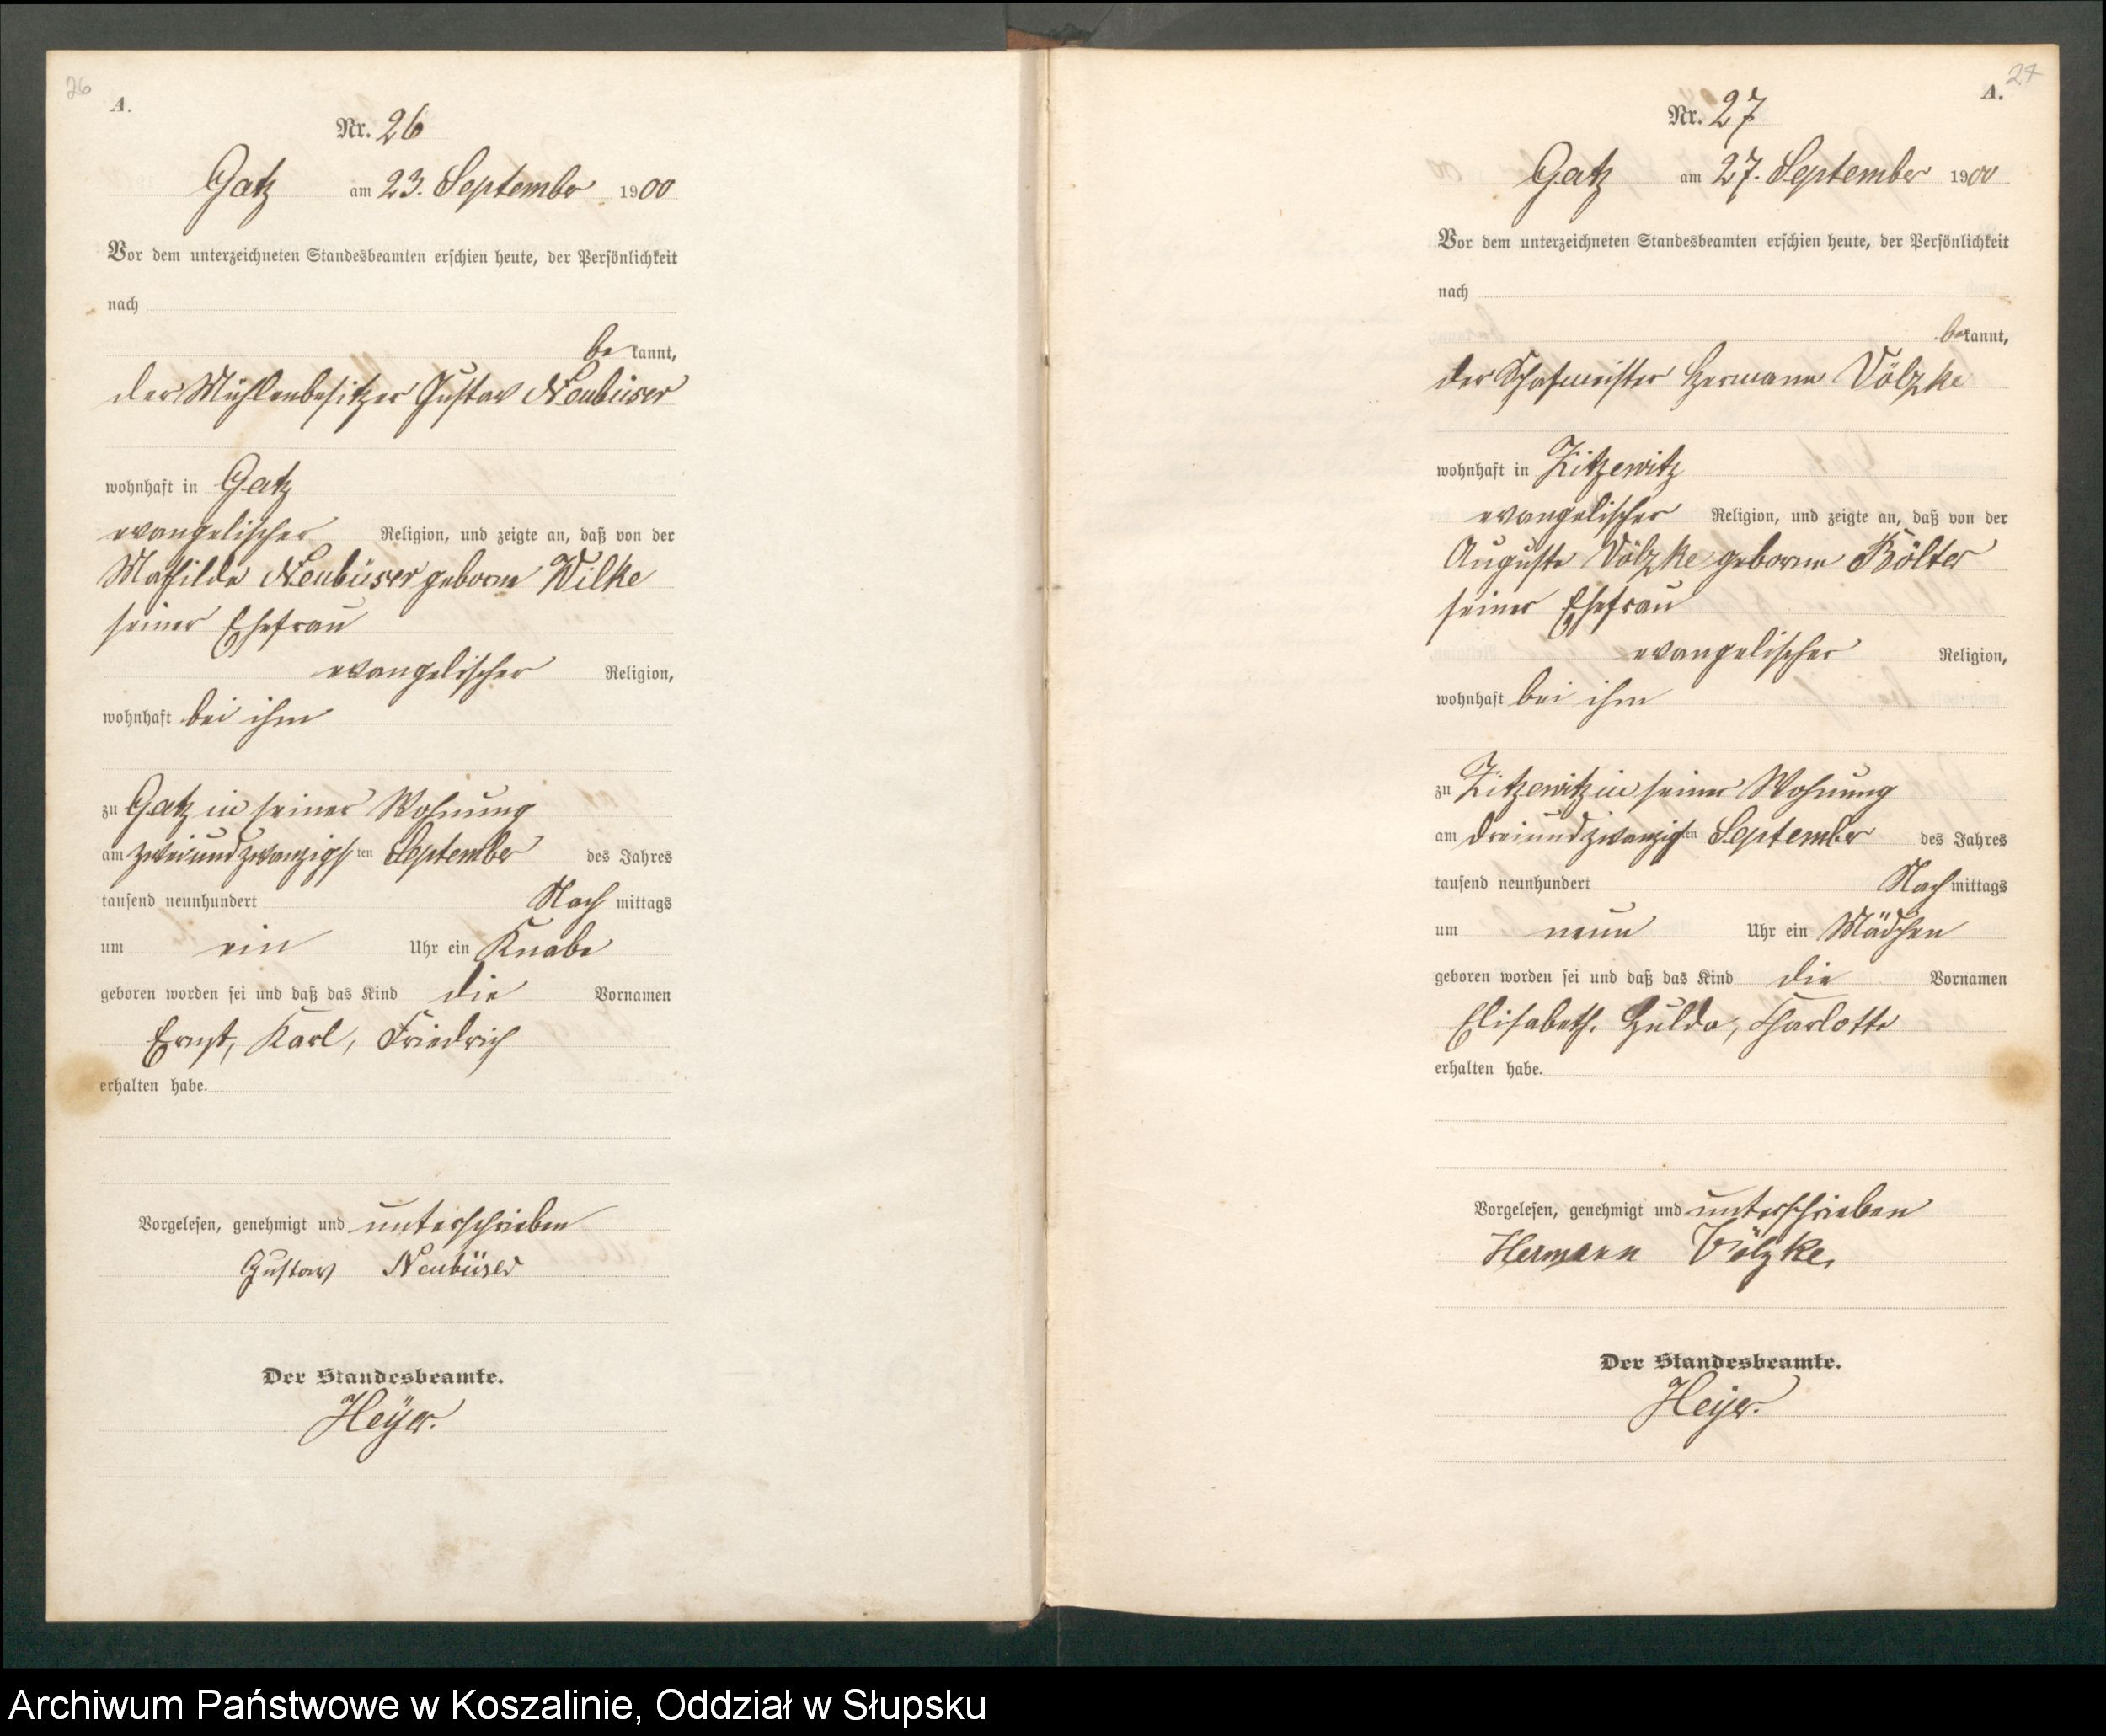 26
A.
Nr. 26
Gatz am 23. September 1900
Vor dem unterzeichneten Standesbeamten erschien heute, der Persönlichkeit
nach
bekannt,
der Mühlenbesitzer Gustav Neubüser
wohnhaft in Gatz
evangelischer Religion, und zeigte an, daß von der
Mathilde Neubüser geborne Wilke
seiner Ehefrau
evangelischer Religion,
wohnhaft bei ihm
zu Gatz in seiner Wohnung
am zweiundzwanzigsten September des Jahres
tausend neunhundert Nachmittags
um ein Uhr ein Knabe
geboren worden sei und daß das Kind die Vornamen
Ernst, Karl, Friedrich
erhalten habe.
Vorgelesen, genehmigt und unterschrieben
Gustav Neubüser
Der Standesbeamte.
Heyer.
27
A.
Nr. 27
Gatz am 27. September 1900
Vor dem unterzeichneten Standesbeamten erschien heute, der Persönlichkeit
nach
bekannt,
der Schafmeister Hermann Völzke
wohnhaft in Zitzewitz
evangelischer Religion, und zeigte an, daß von der
Auguste Völzke geborne Bölter
seiner Ehefrau
evangelischer Religion,
wohnhaft bei ihm
zu Zitzewitz in seiner Wohnung
am dreiundzwanzigsten September des Jahres
tausend neunhundert Nachmittags
um neun Uhr ein Mädchen
geboren worden sei und daß das Kind die Vornamen
Elisabeth, Hulda, Charlotte
erhalten habe.
Vorgelesen, genehmigt und unterschrieben
Hermann Völzke,
Der Standesbeamte.
Heyer.
Archiwum Państwowe w Koszalinie, Oddział w Słupsku